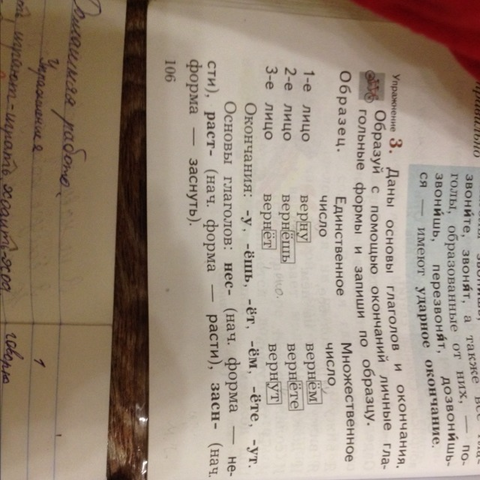 звони́те, звоня́т, а также все гла-
голы, образованные от них, — по-
звони́шь, перезвоня́т, дозвони́шь-
ся — имеют ударное окончание.
Упражнение 3. Даны основы глаголов и окончания.
Образуй с помощью окончаний личные гла-
гольные формы и запиши по образцу.
Образец. Единственное число Множественное число
1-е лицо верну вернём
2-е лицо вернёшь вернёте
3-е лицо вернёт вернут
Окончания: -у, -ёшь, -ёт, -ём, -ёте, -ут.
Основы глаголов: нес- (нач. форма — не-
сти), раст- (нач. форма — расти), засн- (нач.
форма — заснуть).
106
Домашняя работа.
Упражнение